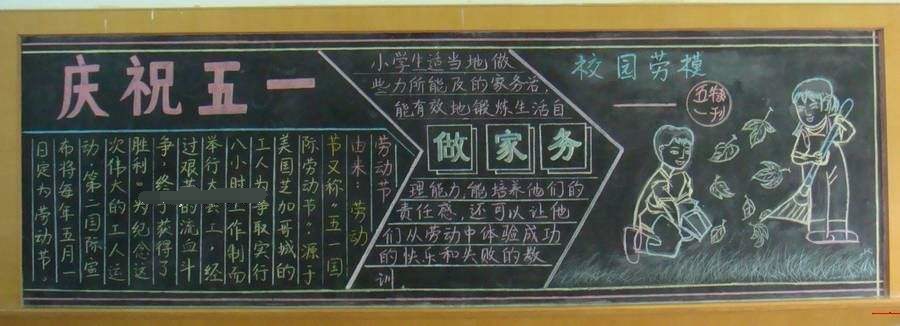 庆祝五一
劳动节
由来：劳动
节又称“五一国
际劳动节”源于
美国芝加哥城的
工人为争取实行
八小时工作制而
举行大罢工，经
过艰苦的流血斗
争，终于获得了
胜利。为纪念这
次伟大的工人运
动，第二国际宣
布将每年五月一
日定为劳动节。
小学生适当地做
些力所能及的家务活，
能有效地锻炼生活自
做家务
理能力，能培养他们的
责任感，还可以让他
们从劳动中体验成功
的快乐和失败的教
训。
校园劳模
五一
特刊